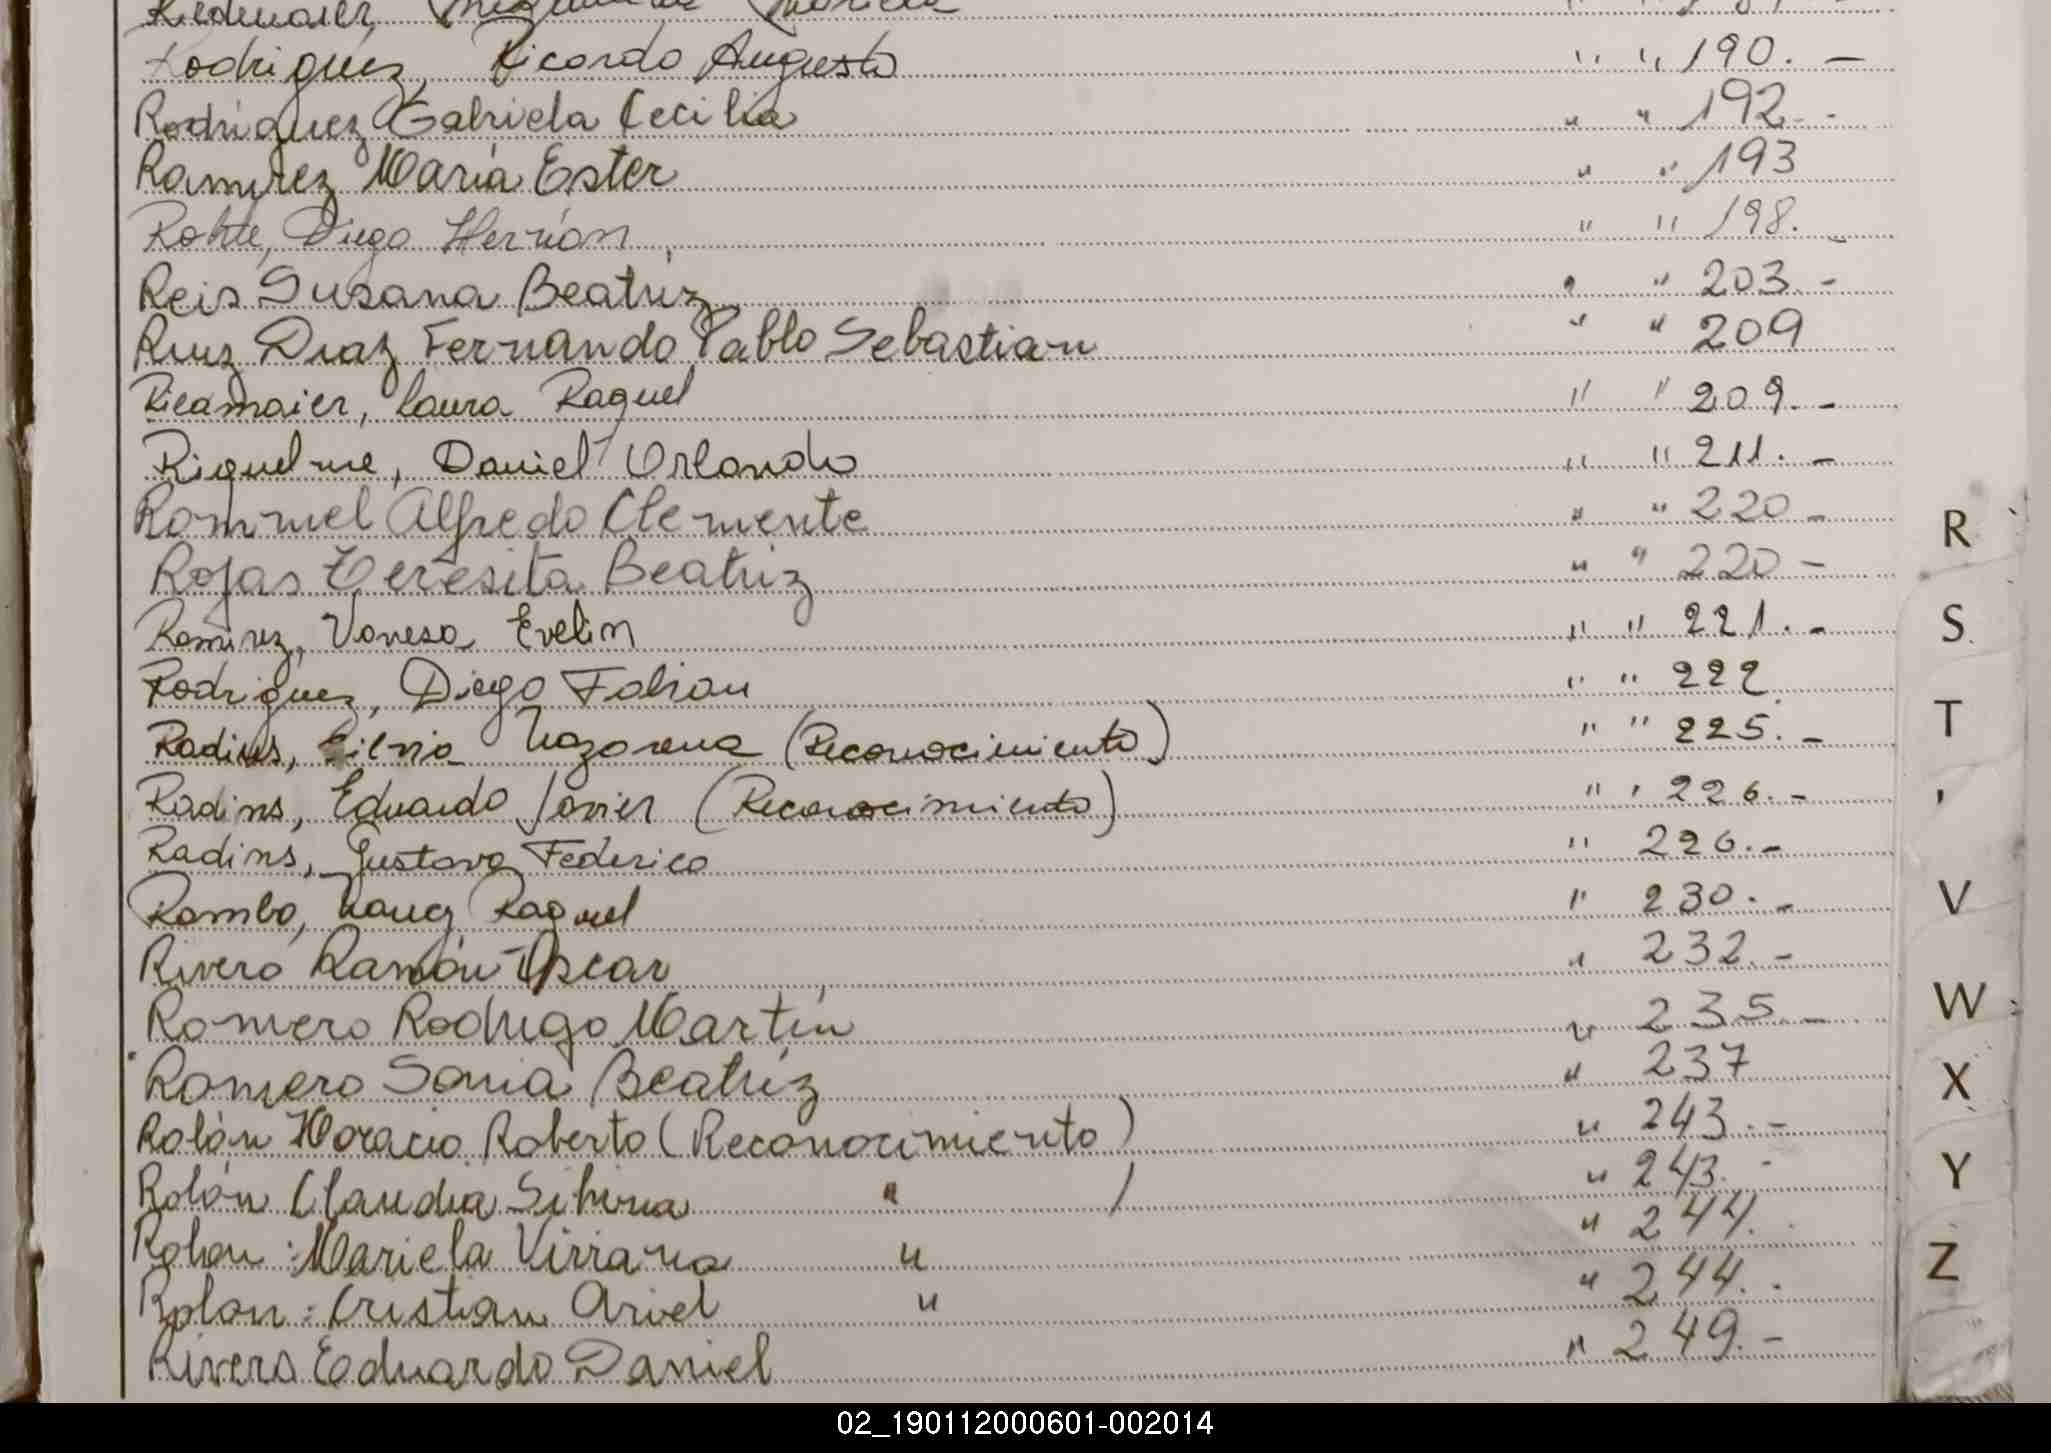 Riedmaier
Rodriguez, Ricardo Augusto " " 190. —
Rodriguez Gabriela Cecilia " " 192.-
Ramirez María Ester " " 193
Rohte, Diego Hernán " " 198. -
Reis Susana Beatriz " " 203. -
Ruiz Diaz Fernando Pablo Sebastian " " 209
Riedmaier, Laura Raquel " " 209. -
Riquelme, Daniel Orlando " " 211. -
Rommel Alfredo Clemente " " 220 -
Rojas Teresita Beatriz " " 220 -
Ramirez, Vanesa Evelin " " 221. -
Rodriguez, Diego Fabian " " 222
Radins, Silvia Nazarena (Reconocimiento) " " 225. -
Radins, Eduardo Javier (Reconocimiento) " " 226. -
Radins, Gustavo Federico " 226. -
Rambo, Nancy Raquel " 230. -
Rivero Ramón Oscar " 232. -
Romero Rodrigo Martín " 235. -
Romero Sonia Beatriz " 237
Rolón Horacio Roberto (Reconocimiento) " 243. -
Rolón Claudia Silvina " ) " 243. -
Rolon : Mariela Viviana " " 244.
Rolon : Cristian Ariel " " 244. -
Rivero Eduardo Daniel " 249. -
R
S
T
V
W
X
Y
Z
02_190112000601-002014